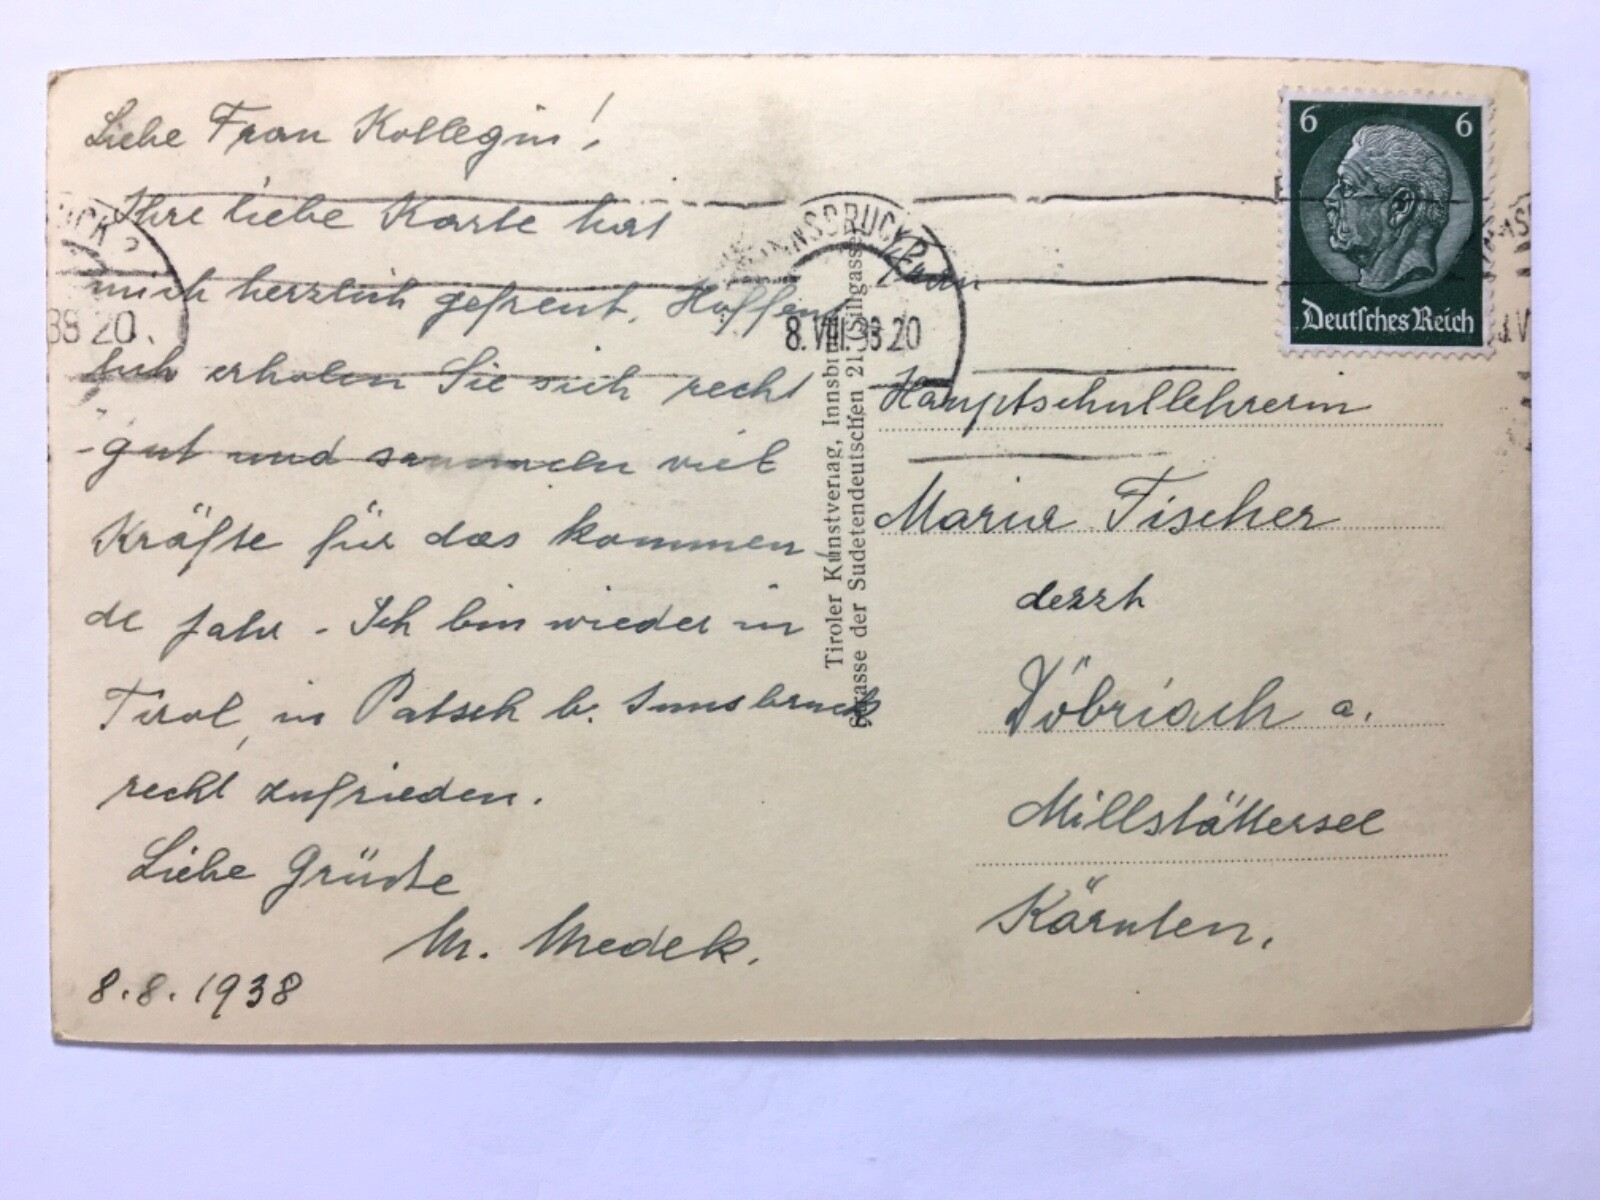 Liebe Frau Kollegin!
Ihre liebe Karte hat
mich herzlich gefreut. Hoffent
lich erholen Sie sich recht
gut und sammeln viel
Kräfte für das kommen-
de Jahr - Ich bin wieder in
Tirol, in Patsch b. Innsbruck
recht zufrieden.
Liebe Grüße
M. Medek.
8.8.1938
Tiroler Kunstverlag, Innsbruck
Strasse der Sudetendeutschen 21, Sillgasse
INNSBRUCK 2
8.VIII.38 20
6 6
Deutsches Reich
Frau
Hauptschullehrerin
Maria Fischer
derzt
Döbriach a.
Millstättersee
Kärnten.